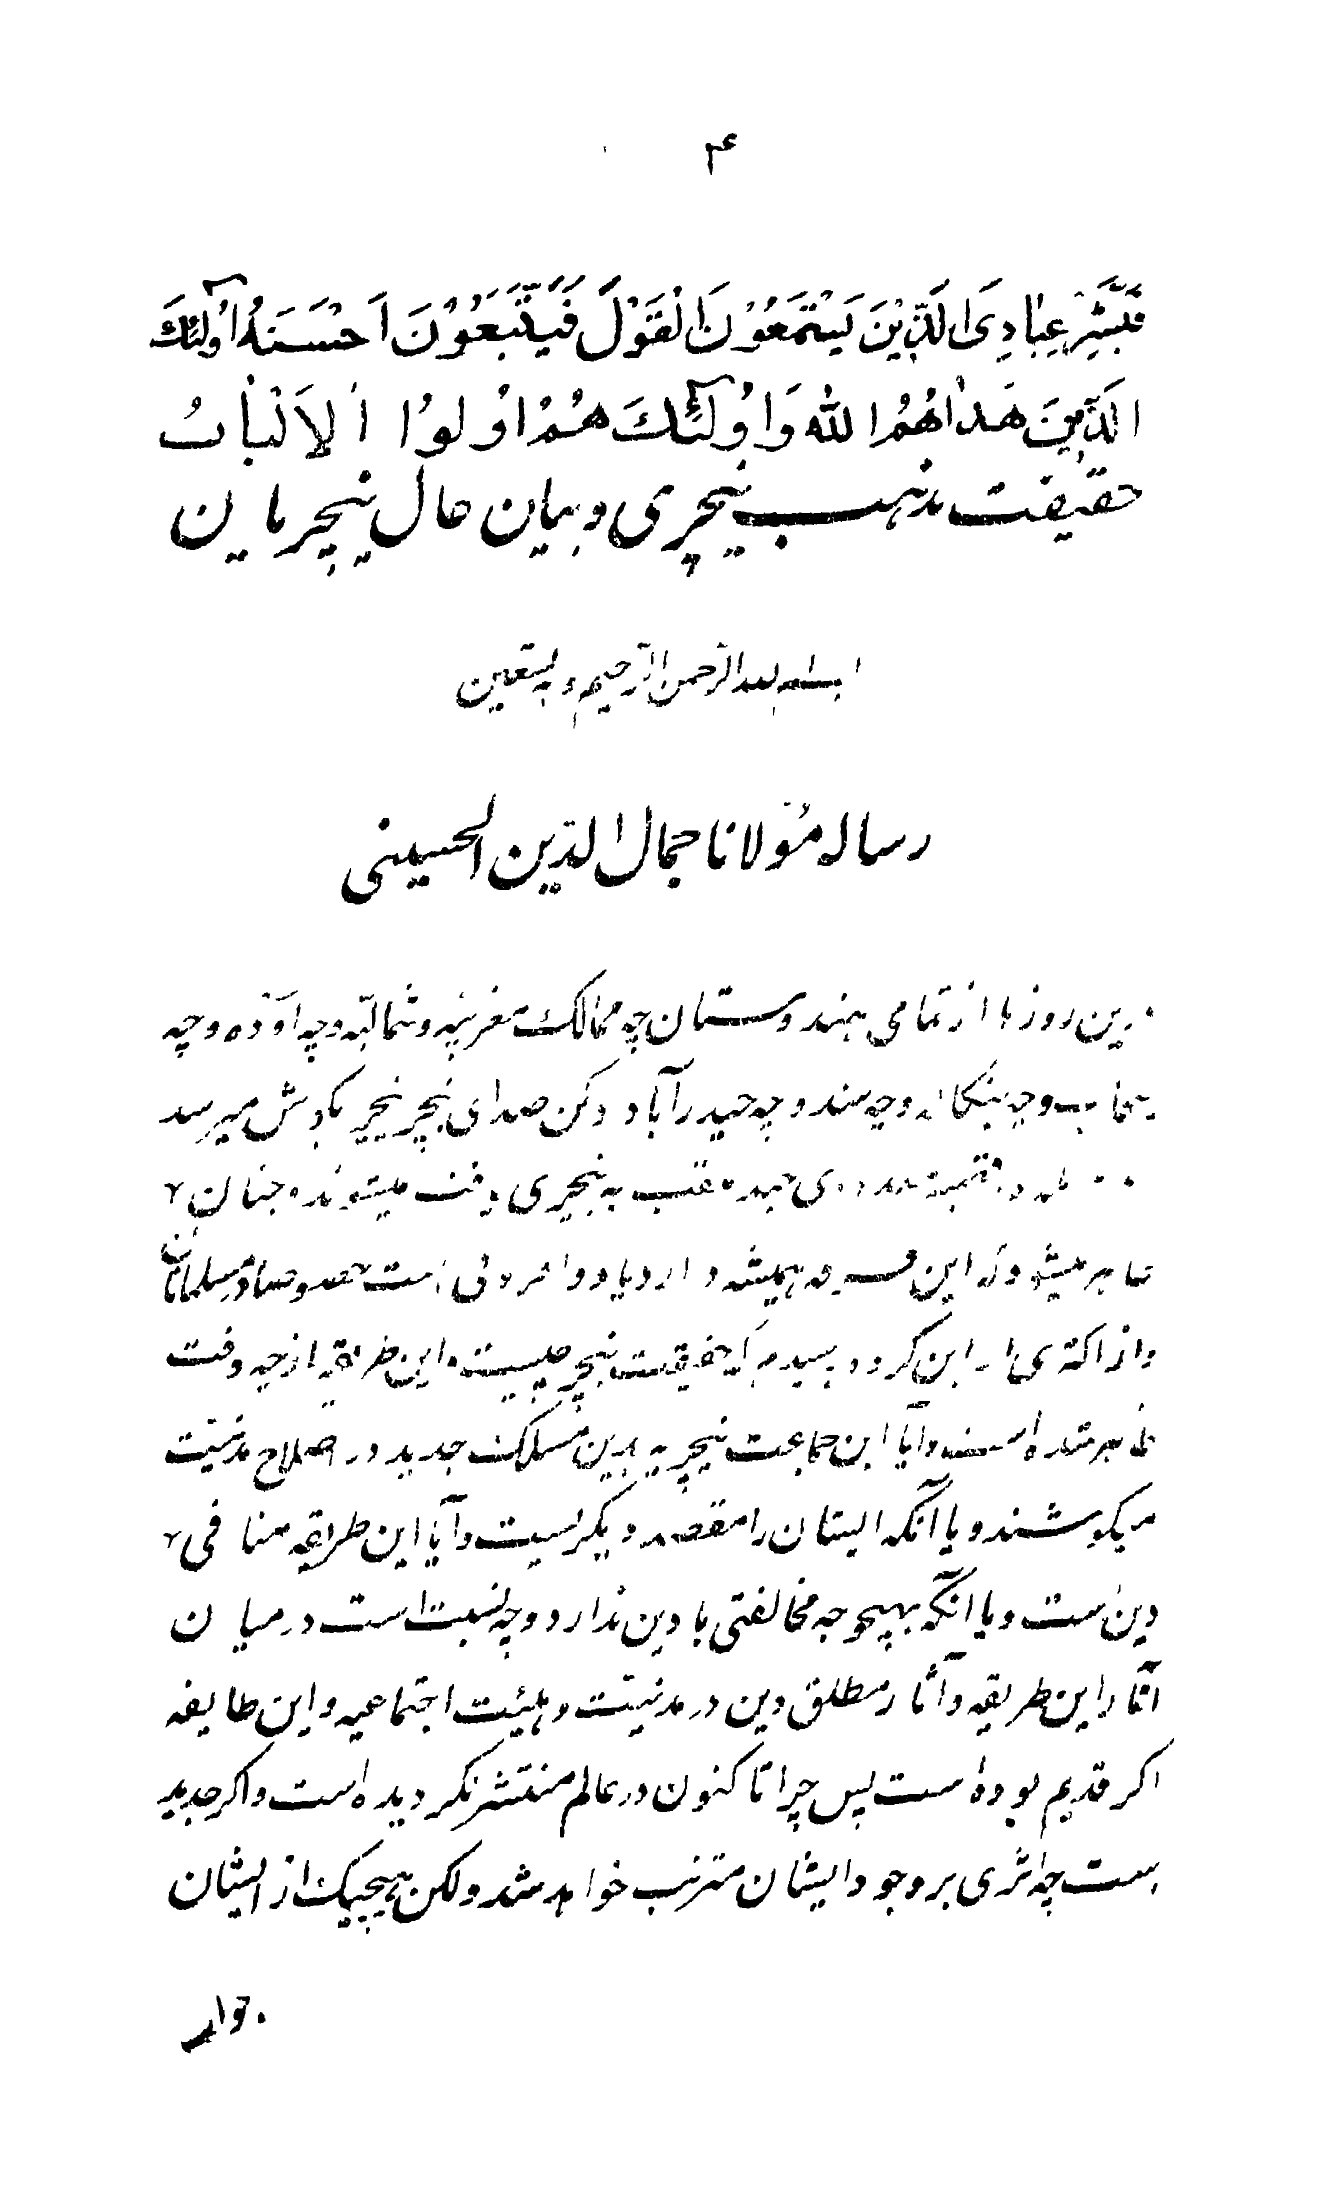 ۴
فَبَشِّرْ عِبٰادِیَ الَّذِیْنَ یَسْتَمِعُوْنَ الْقَوْلَ فَیَتَّبِعُوْنَ اَحْسَنَهُ اُولٰٓئِكَ
الَّذِیْنَ هَدٰاهُمُ اللّٰه وَاُولٰٓئِكَ هُمْ اُولوُا اْلاَلْبٰابُ
حقیقت مذهب نیچری و بیان حال نیچریان
الرّحمن الرّحیم و به نستعین
رساله مؤلانا جمال الدّین الحسینی
درین روزها از تمامی هندوستان چه ممالک مغربیّه و شمالیّه و چه اَوَده و چه
پنجاب و چه بنگاله و چه سند و چه حیدرآباد دکن صدای نیچر نیچر بکوش میرسد
ملقب به نیچری یافت میشوند و چنان
ظاهر میشود که این همیشه در ازدیاد و افزونی است خصوصا در مسلمانان
و از اکثری از این کروه پرسیدم که حقیقت نیچر چیست و این طریقه از چه وقت
ظاهر شده است و آیا این جماعت نیچریه بدین مسلک جدید در اصلاح مدنیّت
میکوشند و یا آنکه ایشان را مقصد دیکریست و آیا این طریقه منافی
دین است و یا آنکه بهیچوجه مخالفتی با دین ندارد و چه نسبت است در میان
آثار این طریقه و آثار مطلق دین در مدنیّت و هیئت اجتماعیه و این طایفه
اکر قدیم بوده است پس چرا تا کنون در عالم منتشر نکردیده است و اکر جدید
است چه اثری بر وجود ایشان مترتب خواهد شد و لکن هیچیک از ایشان
جواب